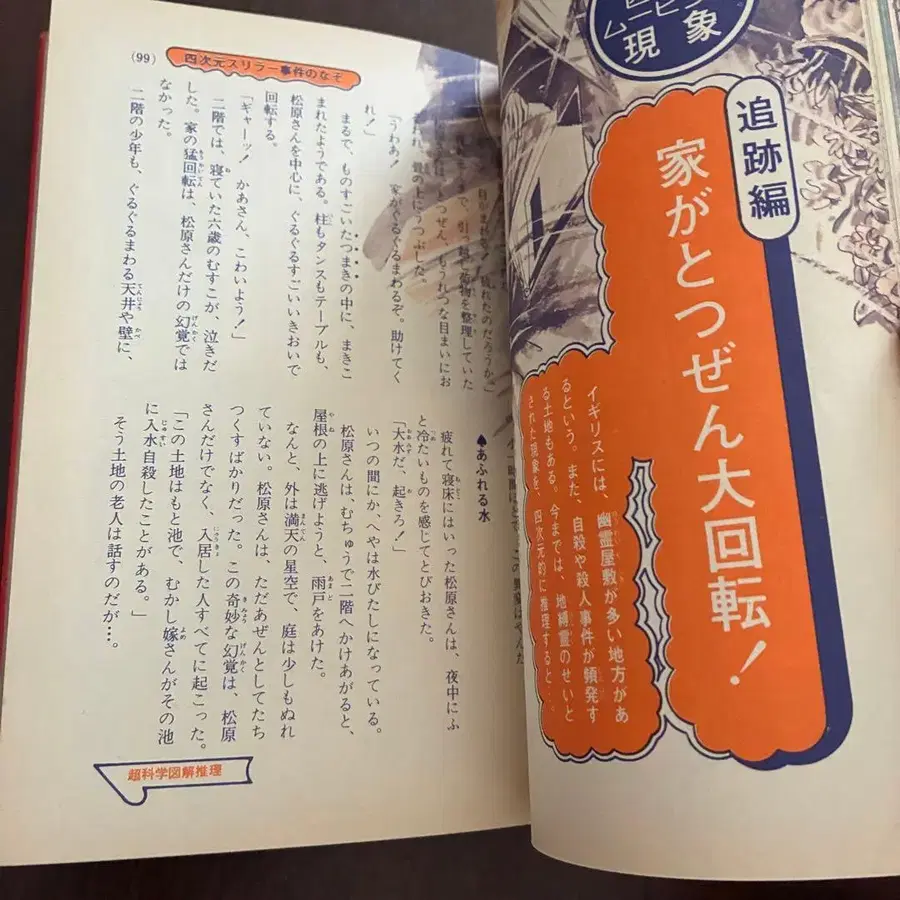 ムービング
現象
追跡編
家がとつぜん大回転！
イギリスには、幽霊屋敷が多い地方があ
るという。また、自殺や殺人事件が頻発す
る土地もある。今までは、地縛霊のせいと
された現象を、四次元的に推理すると…。
(99)
四次元スリラー事件のなぞ
引っ越し荷物を整理していた
は、とつぜん、もうれつな目まいにお
れ、畳の上にうつぶした。
「うわあ！　家がぐるぐるまわるぞ。助けてく
れ！」
まるで、ものすごいたつまきの中に、まきこ
まれたようである。柱もタンスもテーブルも、
松原さんを中心に、ぐるぐるすごいいきおいで
回転する。
「ギャーッ！　かあさん、こわいよう！」
二階では、寝ていた六歳のむすこが、泣きだ
した。家の猛回転は、松原さんだけの幻覚では
なかった。
二階の少年も、ぐるぐるまわる天井や壁に、
♠あふれる水
疲れて寝床にはいった松原さんは、夜中にふ
と冷たいものを感じてとびおきた。
「大水だ、起きろ！」
いつの間にか、へやは水びたしになっている。
松原さんは、むちゅうで二階へかけあがると、
屋根の上に逃げようと、雨戸をあけた。
なんと、外は満天の星空で、庭は少しもぬれ
ていない。松原さんは、ただあぜんとしてたち
つくすばかりだった。この奇妙な幻覚は、松原
さんだけでなく、入居した人すべてに起こった。
「この土地はもと池で、むかし嫁さんがその池
に入水自殺したことがある。」
そう土地の老人は話すのだが…。
超科学図解推理